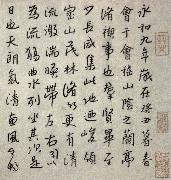 永和九年歲在癸丑暮春
會于會稽山陰之蘭亭
脩禊事也羣賢畢至
少長咸集此地迺峻領
崇山茂林脩竹更有清
流激湍暎帶左右引
為流觴曲水列坐其次是
日也天朗氣清惠風和